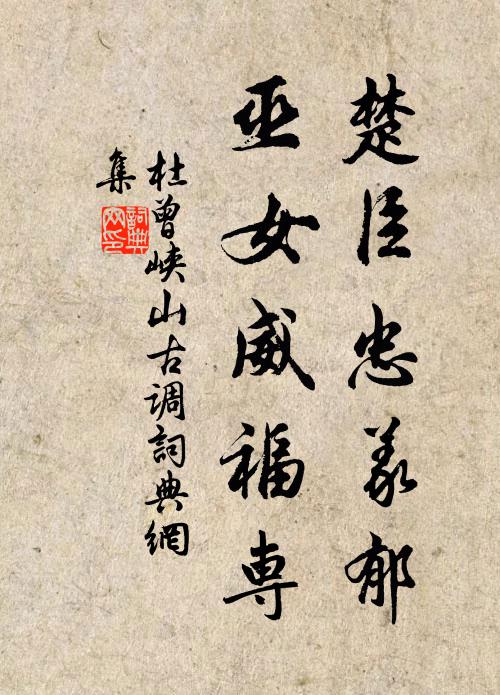 楚臣忠義郁
巫女威福専
杜曾峽山古调詞典網
集
詞典
网印